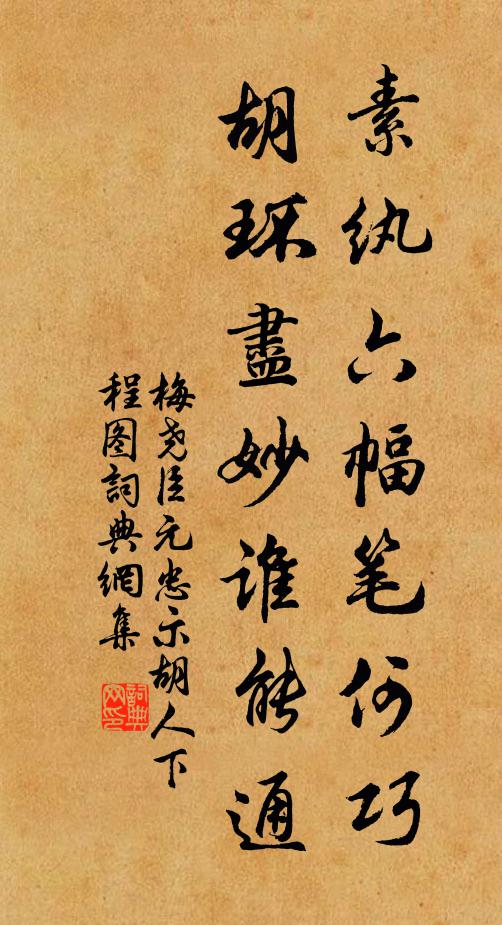 素纨六幅笔何巧
胡环尽妙谁能通
梅尧臣元忠示胡人下
程图詞典網集
詞典网印